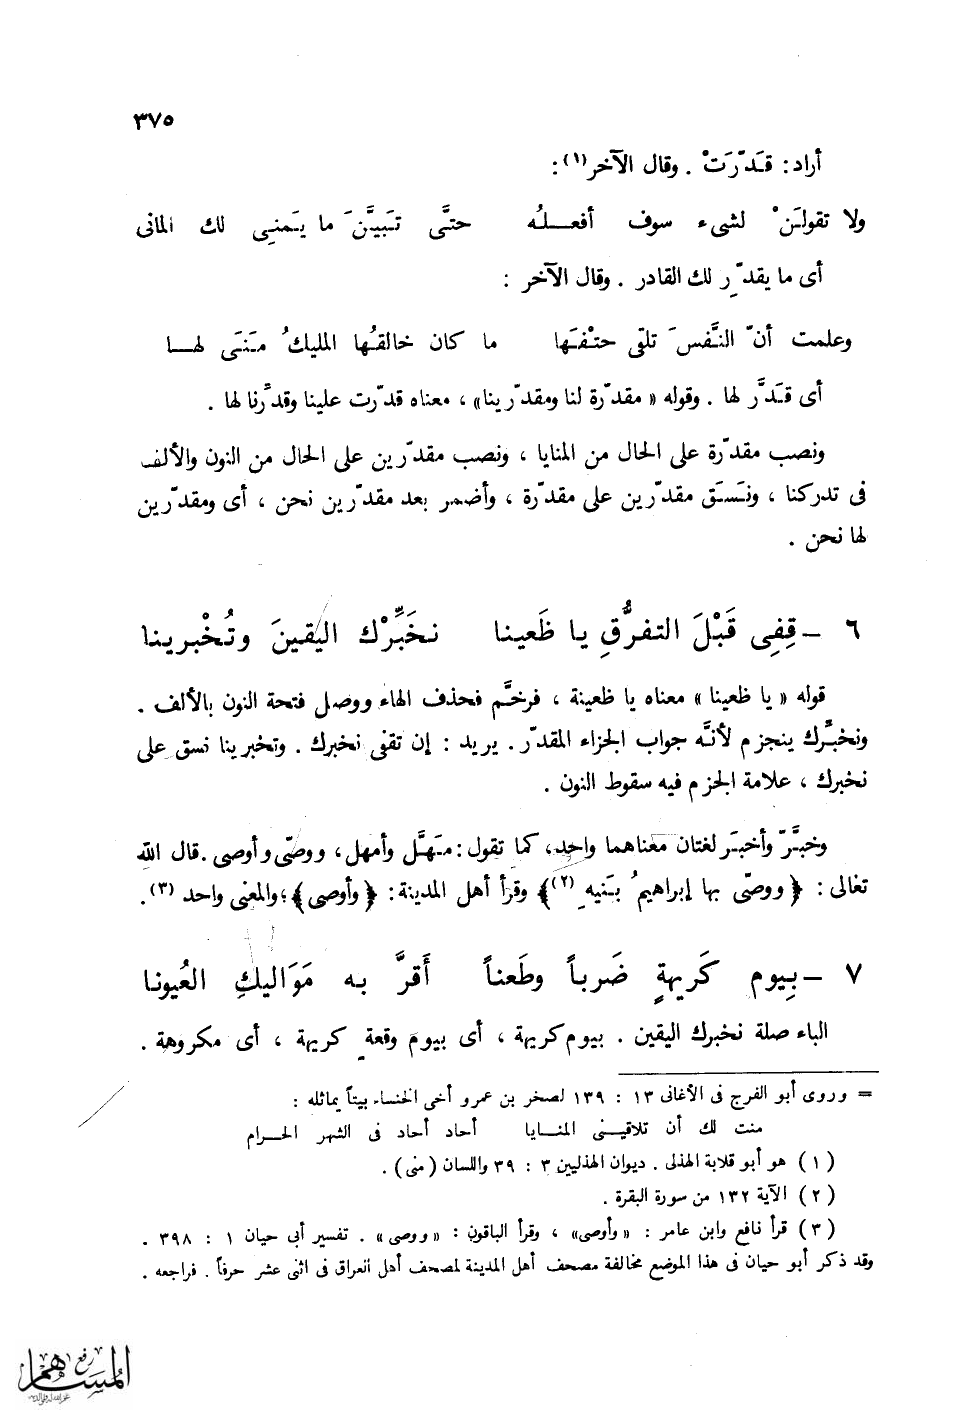 ٣٧٥
أراد: قَدّرَتْ . وقال الآخر(١):
ولا تقولَنْ لشىء سوف أفعلُه حتَّى تَبيَّنَ ما يَمنِى لك المانى
أى ما يقدّر لك القادر . وقال الآخر :
وعلمت أنّ النَّفسَ تلقى حتفَها ما كان خالقُها المليكُ مَنَى لها
أى قدَّر لها . وقوله « مقدّرة لنا ومقدّرينا» ، معناه قدّرت علينا وقدِّرنا لها .
ونصب مقدّرة على الحال من المنايا ، ونصب مقدّرين على الحال من النون والألف
فى تدركنا ، ونَسَق مقدّرين على مقدّرة ، وأضمر بعد مقدّرين نحن ، أى ومقدّرين
لها نحن .
٦ – قِفِى قَبْلَ التفرُّقِ يا ظَعينا نخبِّرْك اليقينَ وتُخْبرينا
قوله « يا ظعينا » معناه يا ظعينة ، فرخَّم فحذف الهاء ووصل فتحة النون بالألف .
ونخبِّرك ينجزم لأنَّه جواب الجزاء المقدّر. يريد : إن تقفى نخبرك . وتخبرينا نسق على
نخبرك ، علامة الجزم فيه سقوط النون .
وخبَّر وأخبَر لغتان معناهما واحد، كما تقول: مَهَّل وأمهل، ووصّى وأوصى .قال الله
تعالى : ﴿ ووصّى بها إبراهيمُ بَنيهِ (٢)﴾ وقرأ أهل المدينة: ﴿ وأوصى ﴾؛والمعنى واحد (٣).
٧ – بِيوم كَريهةٍ ضَرباً وطَعناً أَقرَّ به مَوَاليكِ العُيونا
الباء صلة نخبرك اليقين . بيوم كريهة ، أى بيوم وقعةٍ كريهة ، أى مكروهة .
= وروى أبو الفرج فى الأغانى ١٣ : ١٣٩ لصخر بن عمرو أخى الخنساء بيتاً يماثله :
منت لك أن تلاقينى المنايا أحاد أحاد فى الشهر الحرام
(١) هو أبو قلابة الهذلى . ديوان الهذليين ٣ : ٣٩ واللسان (منى) .
(٢) الآية ١٣٢ من سورة البقرة .
(٣) قرأ نافع وابن عامر : «وأوصى» ، وقرأ الباقون : «ووصى» . تفسير أبى حيان ١ : ٣٩٨ .
وقد ذكر أبو حيان فى هذا الموضع مخالفة مصحف أهل المدينة لمصحف أهل العراق فى اثنى عشر حرفاً . فراجعه .